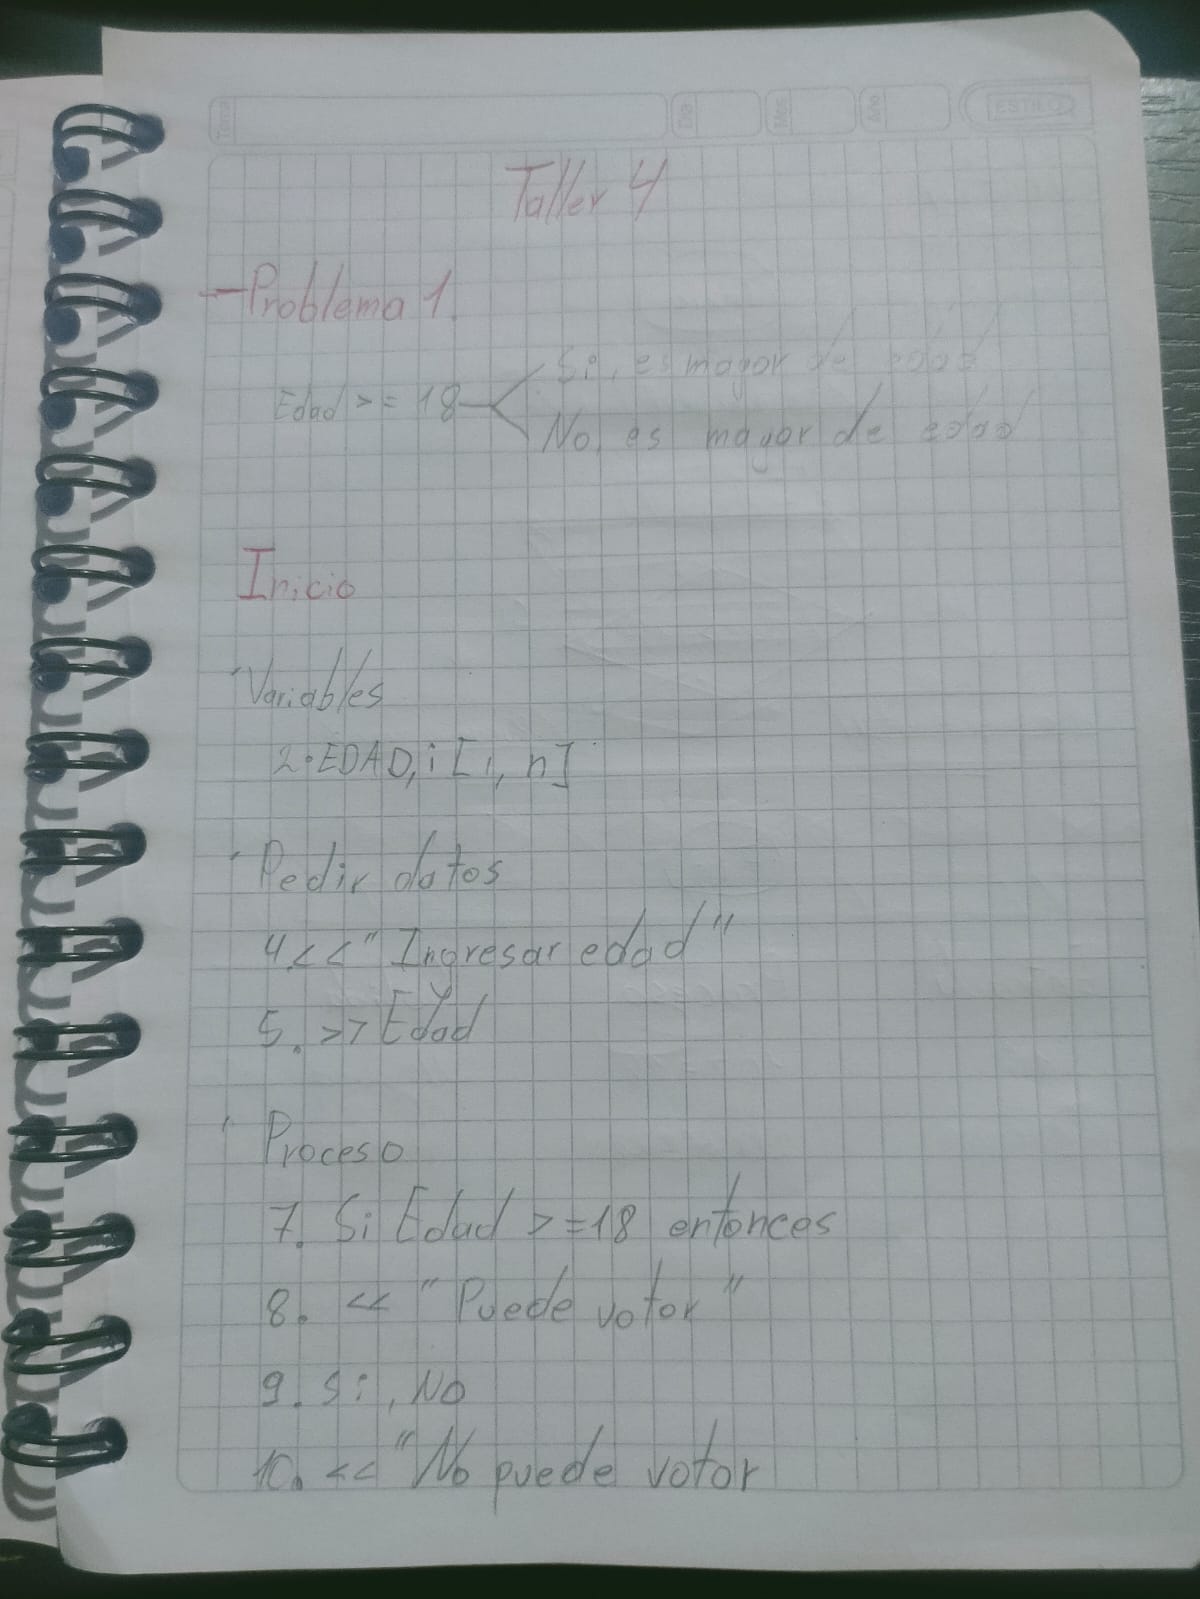 Tema
Día
Mes
Año
ESTILO
Taller 4
- Problema 1.
Si, es mayor de edad
Edad >= 18
No, es mayor de edad
Inicio
Variables
2. EDAD, i [1, n]
Pedir datos
4. << "Ingresar edad"
5. >> Edad
Proceso
7. Si Edad >= 18 entonces
8. << "Puede votar"
9. Si, No
10. << "No puede votar